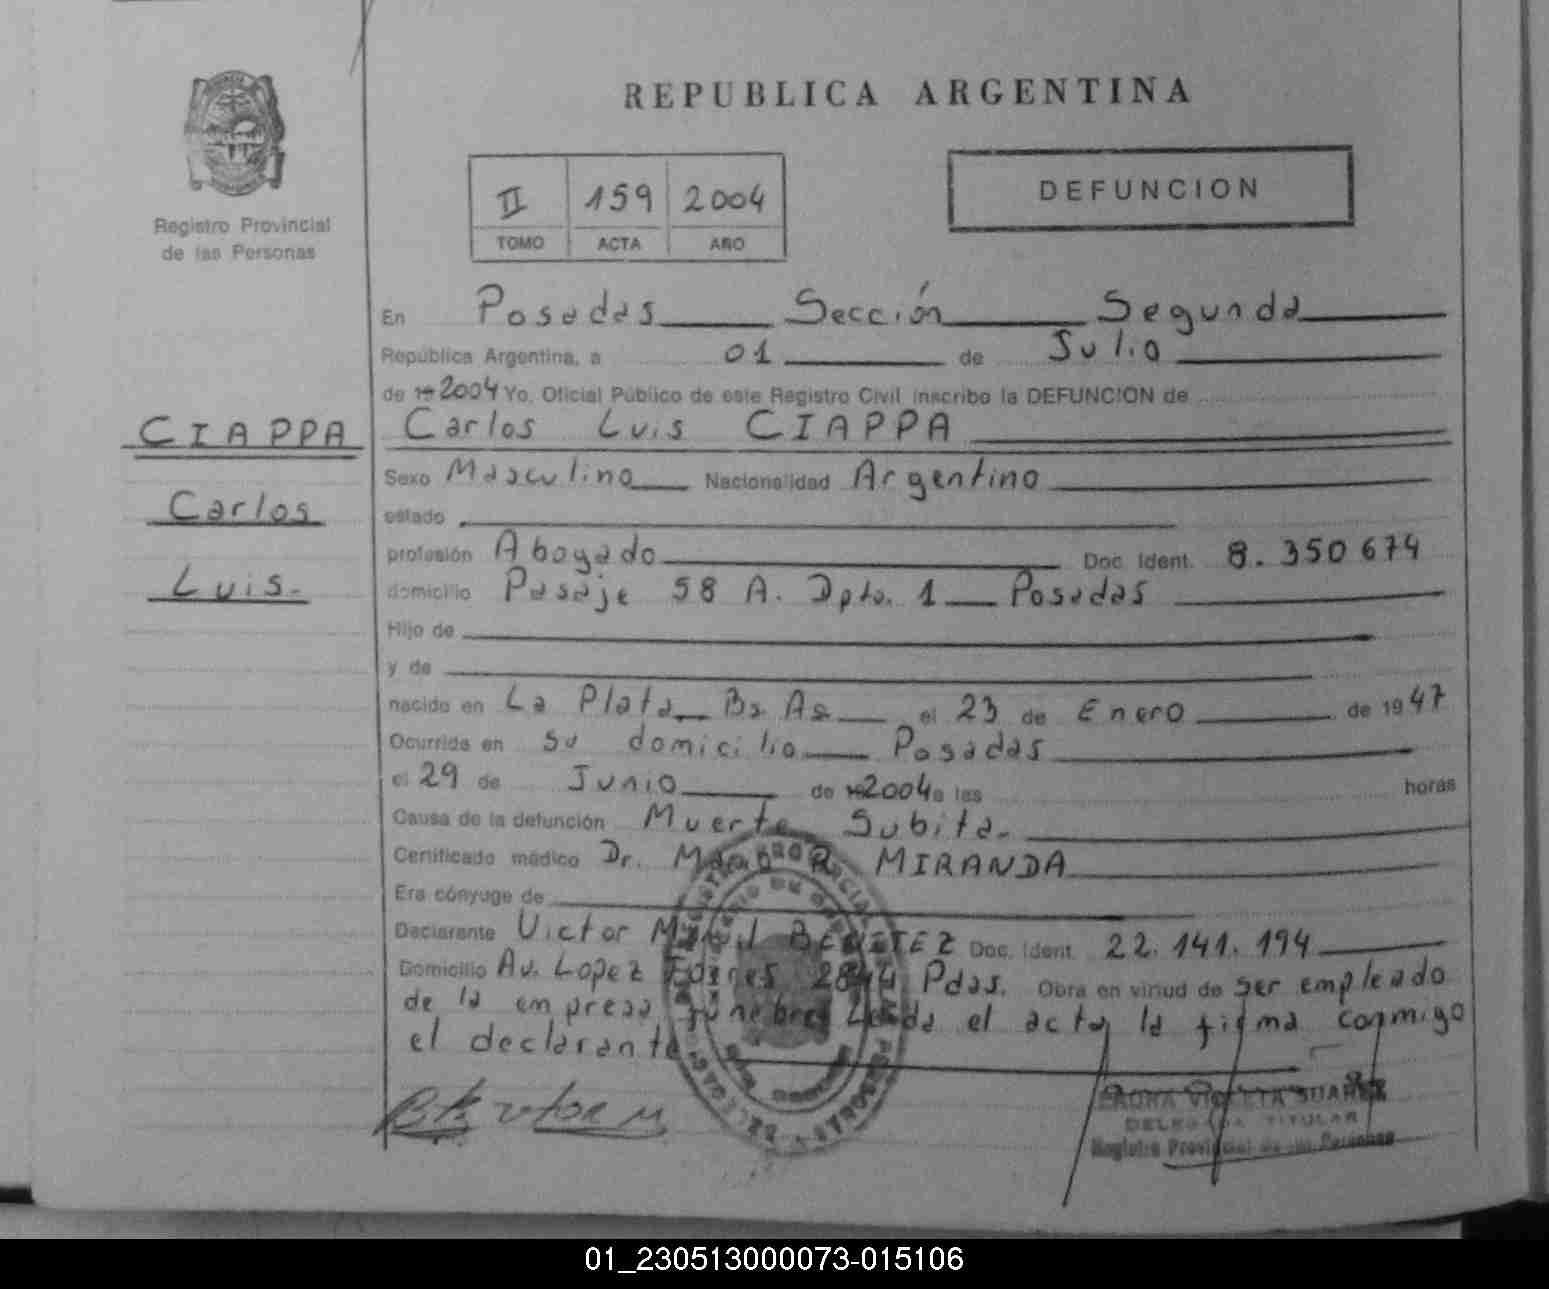 REPUBLICA ARGENTINA
Registro Provincial
de las Personas
II 159 2004
TOMO ACTA AÑO
DEFUNCION
En Posadas Sección Segunda
República Argentina, a 01 de Julio
de 19 2004 Yo, Oficial Público de este Registro Civil inscribo la DEFUNCION de
CIAPPA
Carlos
Luis.
Carlos Luis CIAPPA
Sexo Masculino Nacionalidad Argentino
estado
profesión Abogado Doc. Ident. 8.350674
domicilio Pasaje 58 A. Dpto. 1 Posadas
Hijo de
y de
nacido en La Plata Bs. As. el 23 de Enero de 1947
Ocurrida en su domicilio Posadas
el 29 de Junio de 19 2004 a las horas
Causa de la defunción Muerte Subita.
Certificado médico Dr. R. MIRANDA
Era cónyuge de
Declarante Victor BENITEZ Doc. Ident. 22.141.194
Domicilio Av. Lopez Pdas. Obra en virtud de ser empleado
de la empresa funebre Leída el acta la firma conmigo
el declarante
DELEGADA TITULAR
Registro Provincial de las Personas
01_230513000073-015106